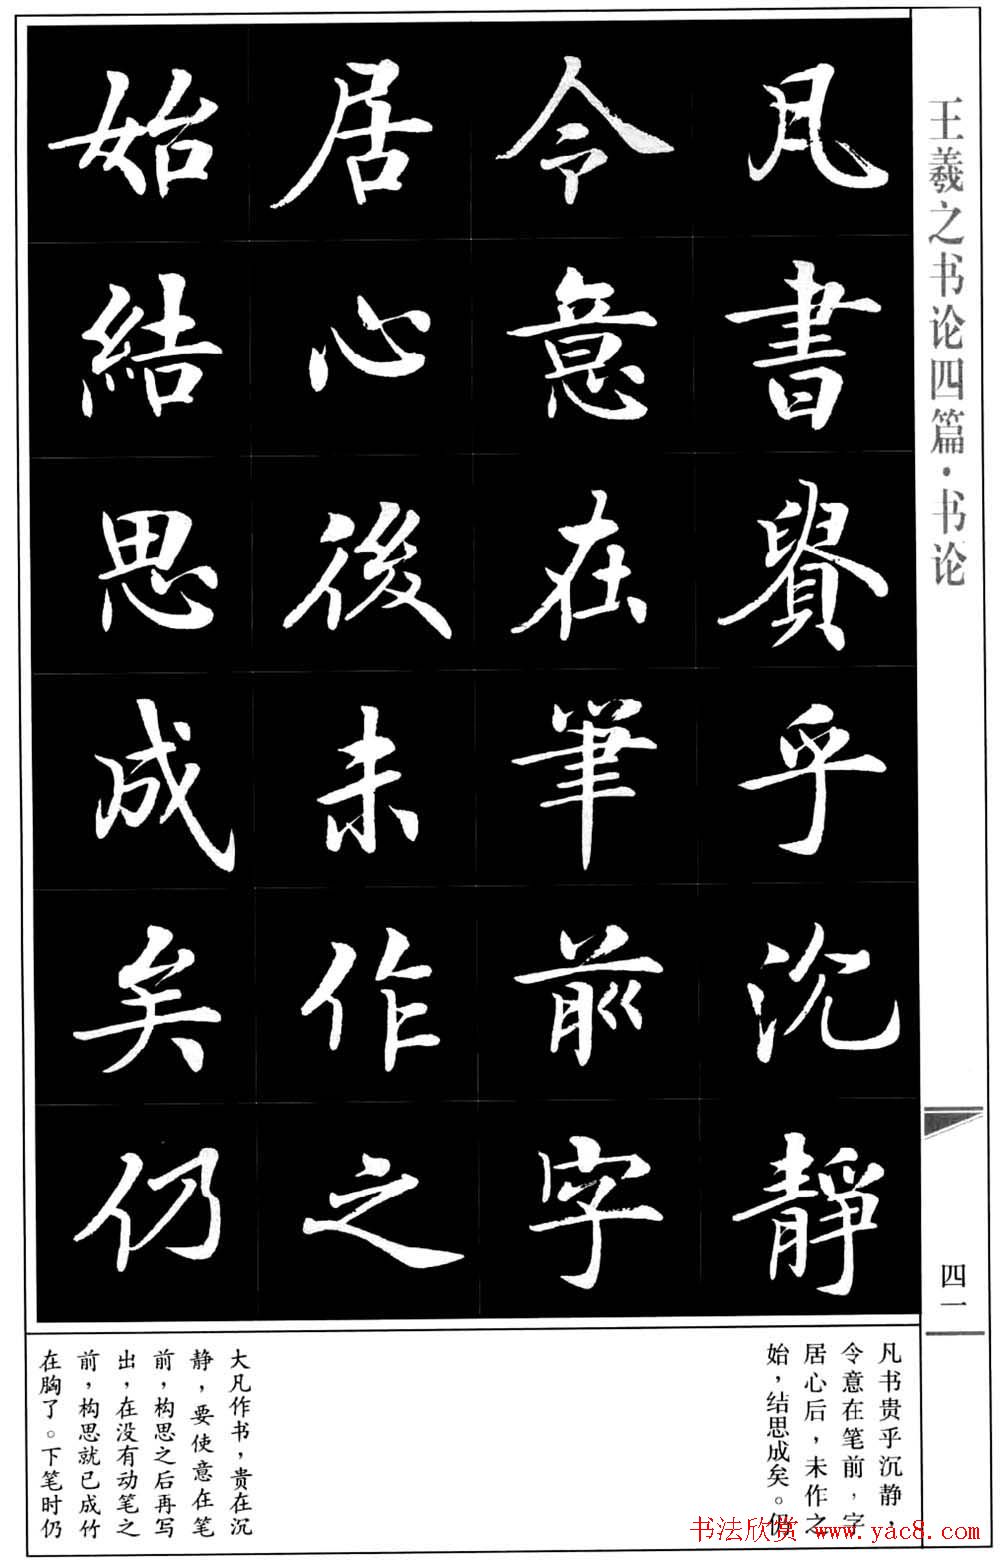 王羲之书论四篇·书论
四一
凡書貴乎沉靜
令意在筆前字
居心後未作之
始結思成矣仍
凡书贵乎沉静，
令意在笔前，字
居心后，未作之
始，结思成矣。仍
大凡作书，贵在沉
静，要使意在笔
前，构思之后再写
出，在没有动笔之
前，构思就已成竹
在胸了。下笔时仍
书法欣赏 www.yac8.com